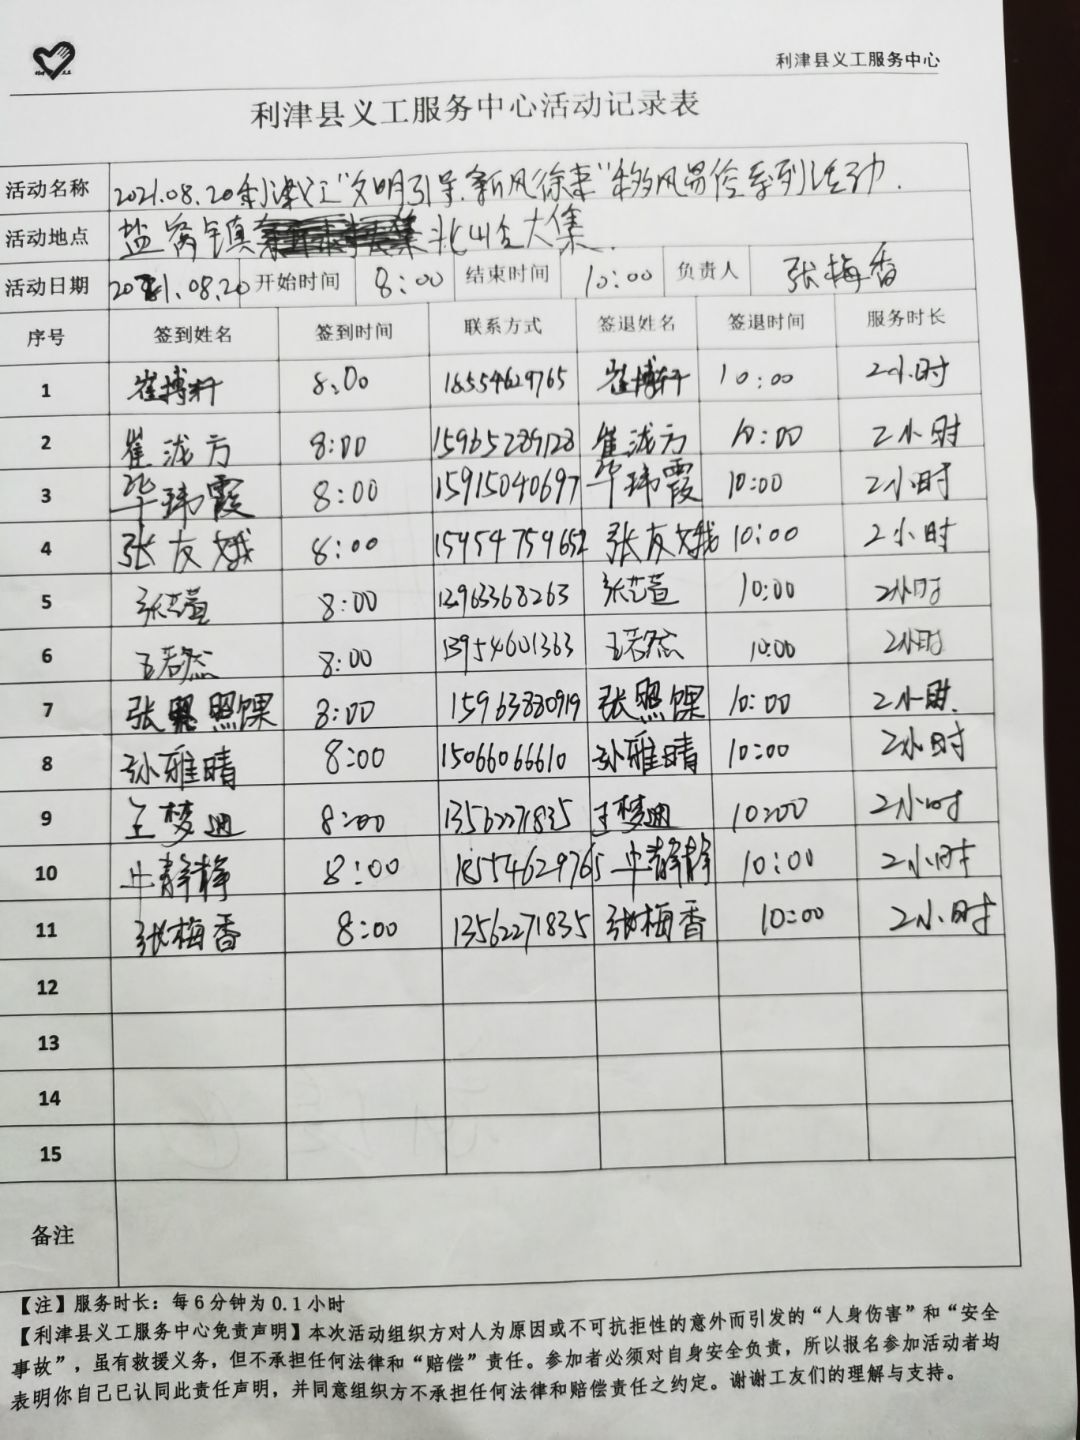 利津县义工服务中心
利津县义工服务中心活动记录表
活动名称 2021.08.20利津义工"文明引导.新风徐来"移风易俗系列活动.
活动地点 盐窝镇 北岭大集.
活动日期 2021.08.20 开始时间 8:00 结束时间 10:00 负责人 张梅香
序号 签到姓名 签到时间 联系方式 签退姓名 签退时间 服务时长
1 崔搏轩 8:00 18554629765 崔搏轩 10:00 2小时
2 崔泷方 8:00 15965289128 崔泷方 10:00 2小时
3 毕玮霞 8:00 15915040697 毕玮霞 10:00 2小时
4 张友娥 8:00 15954759652 张友娥 10:00 2小时
5 张艺萱 8:00 13963368263 张艺萱 10:00 2小时
6 王若然 8:00 13954601363 王若然 10:00 2小时
7 张照馃 8:00 15963880919 张照馃 10:00 2小时.
8 孙雅晴 8:00 15066066610 孙雅晴 10:00 2小时
9 王梦迪 8:00 13562271835 王梦迪 10:00 2小时
10 牛静静 8:00 18554629765 牛静静 10:00 2小时
11 张梅香 8:00 13562271835 张梅香 10:00 2小时
12
13
14
15
备注
【注】服务时长：每6分钟为0.1小时
【利津县义工服务中心免责声明】本次活动组织方对人为原因或不可抗拒性的意外而引发的“人身伤害”和“安全
事故”，虽有救援义务，但不承担任何法律和“赔偿”责任。参加者必须对自身安全负责，所以报名参加活动者均
表明你自己已认同此责任声明，并同意组织方不承担任何法律和赔偿责任之约定。谢谢工友们的理解与支持。